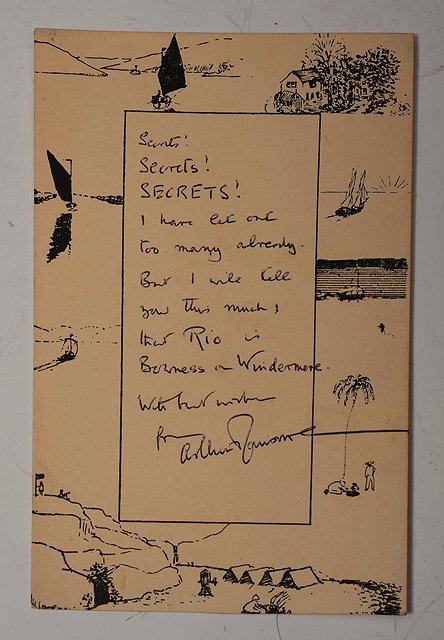 Secrets!
Secrets!
SECRETS!
I have let out
too many already.
But I will tell
you this much;
that Rio is
Bowness on Windermere.
With best wishes
from
Arthur Ransome